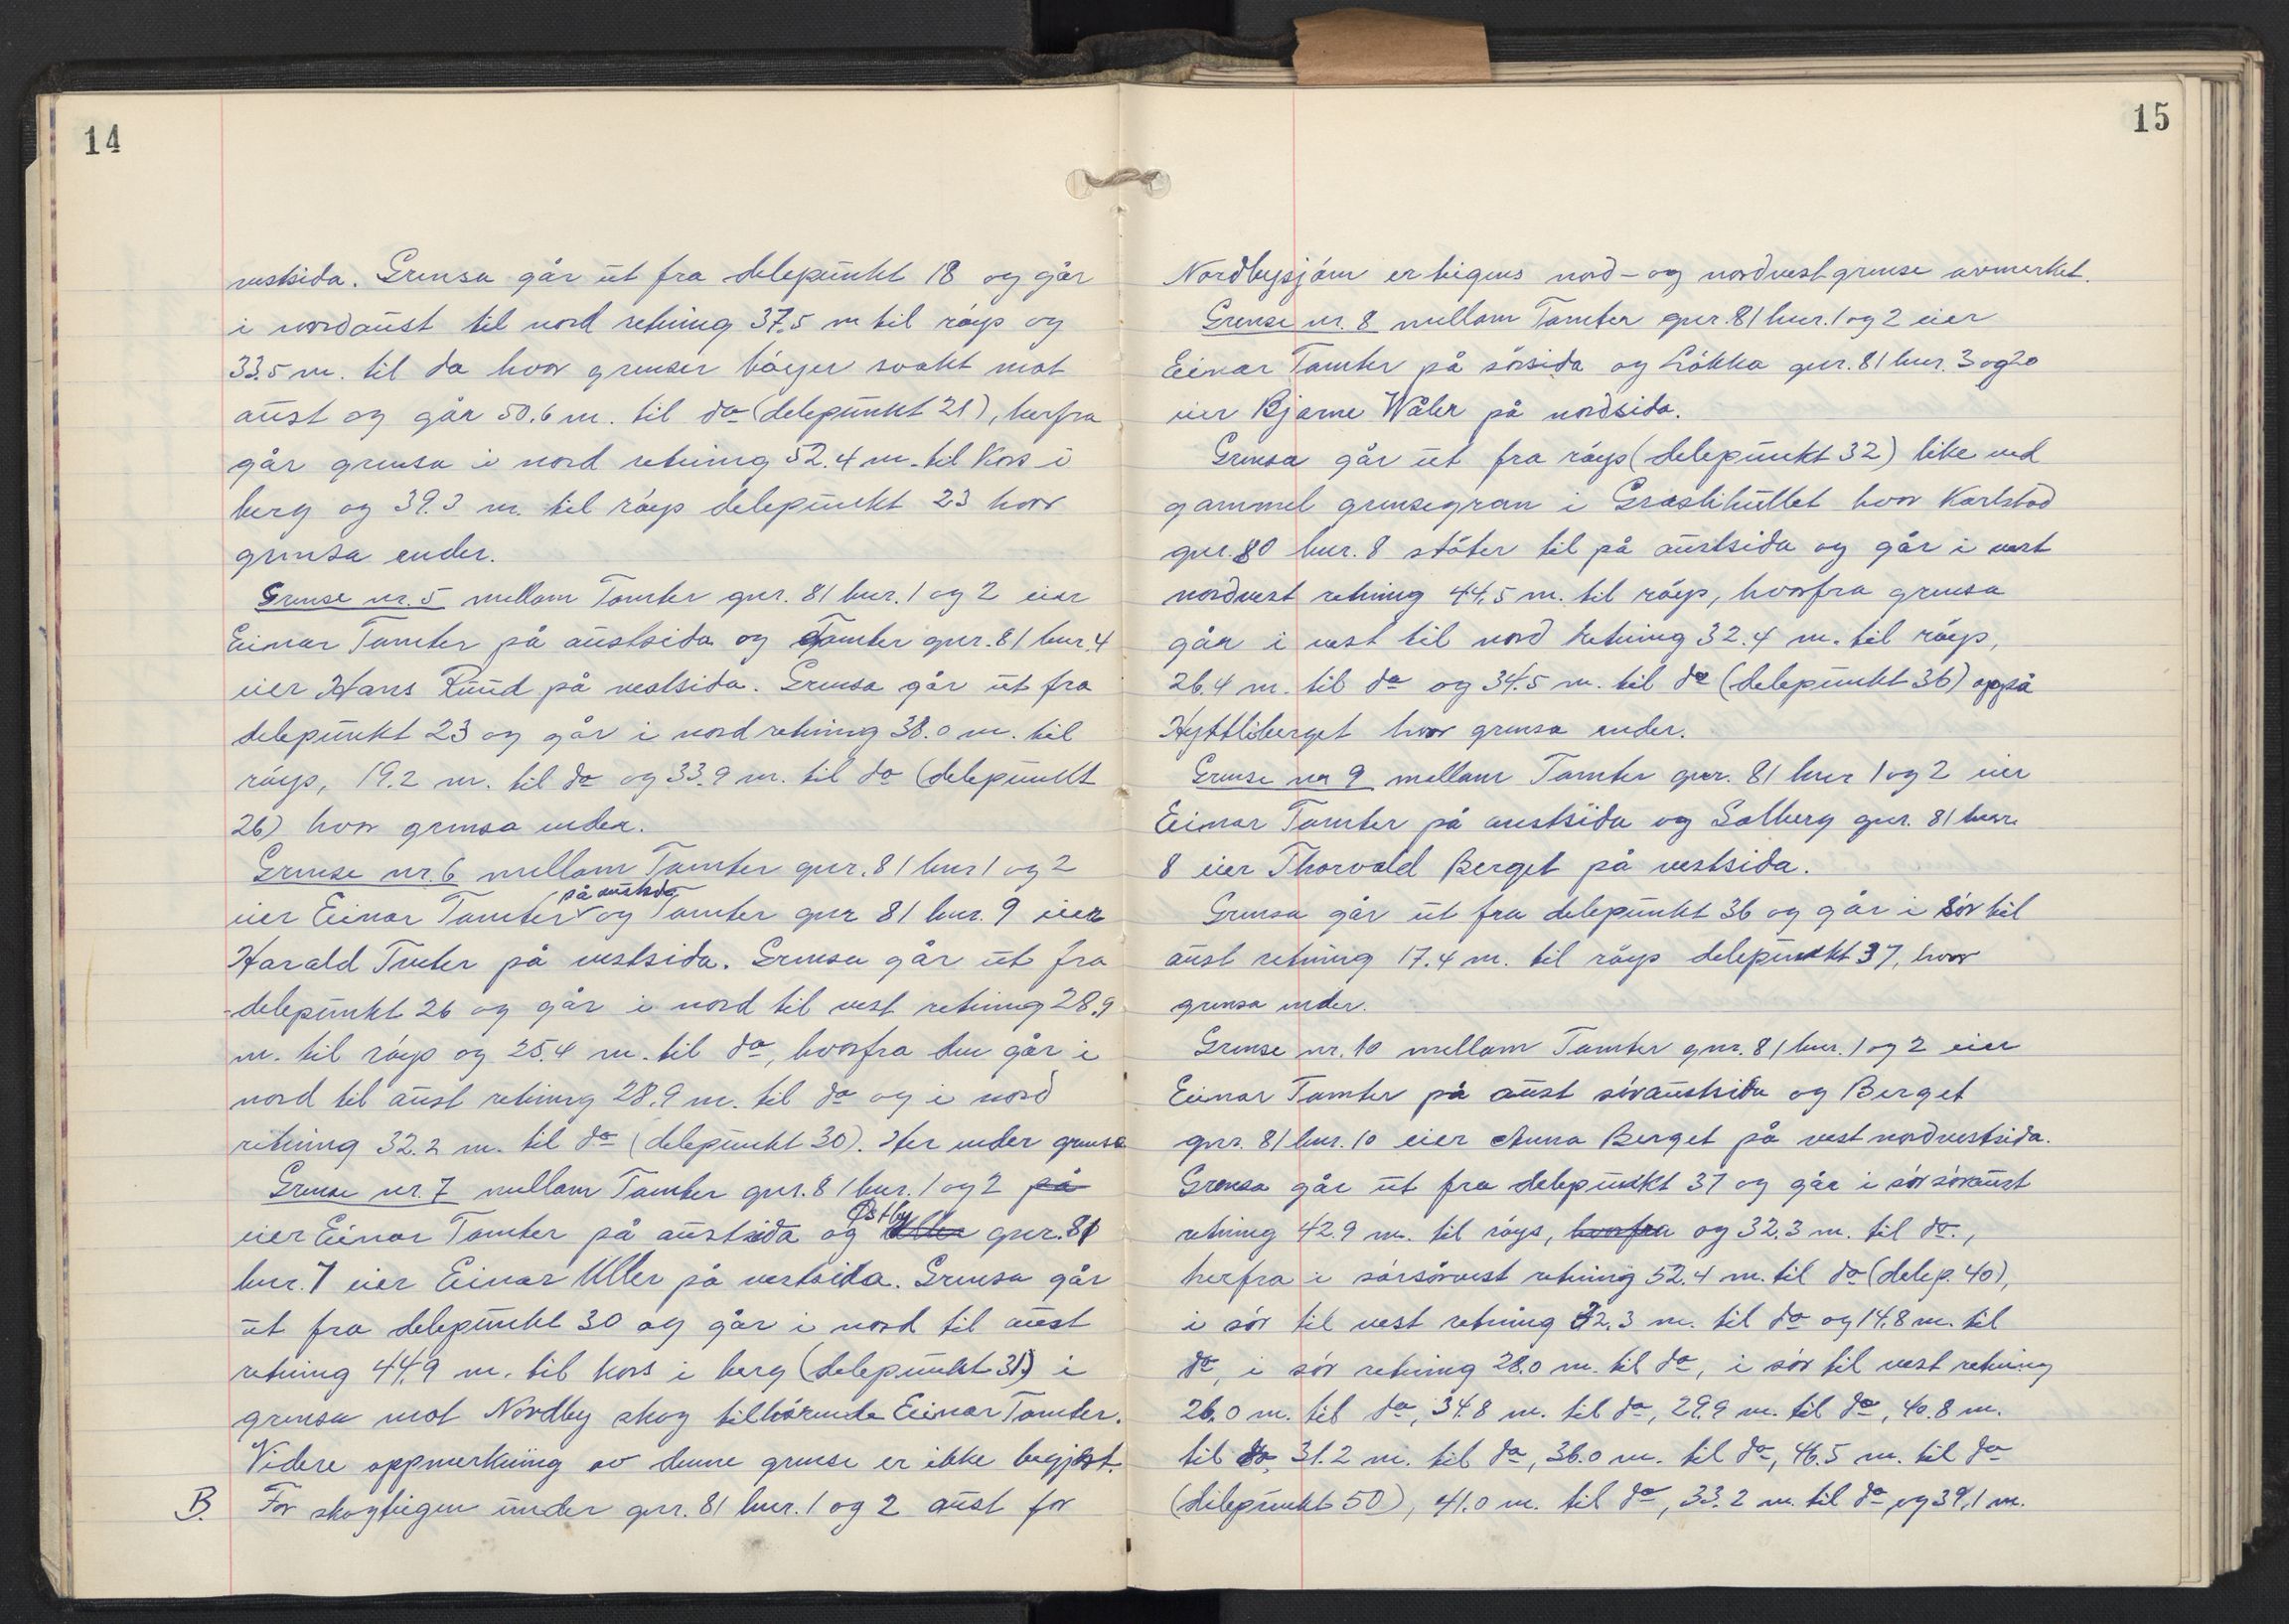 14
vestsida. Grensa går ut fra delepunkt 18 og går
i nordaust til nord retning 37.5 m til röys og
33.5 m. til do hvor grenser böyer svakt mot
aust og går 50.6 m. til do (delepunkt 21), herfra
går grensa i nord retning 52.4 m. til kors i
berg og 39.3 m. til röys delepunkt 23 hvor
grensa ender.
Grense nr. 5 mellom Tomter gnr. 81 bnr. 1 og 2 eier
Einar Tomter på austsida og Tomter gnr. 81 bnr. 4
eier Hans Ruud på vestsida. Grensa går ut fra
delepunkt 23 og går i nord retning 38.0 m. til
röys, 19.2 m. til do og 33.9 m. til do (delepunkt
26) hvor grensa ender.
Grense nr. 6 mellom Tomter gnr. 81 bnr 1 og 2
på austsida
eier Einar Tomter og Tomter gnr 81 bnr. 9 eier
Harald Tveter på vestsida. Grensa går ut fra
delepunkt 26 og går i nord til vest retning 28.9
m. til röys og 25.4 m. til do, hvorfra den går i
nord til aust retning 28.9 m. til do og i nord
retning 32.2 m. til do (delepunkt 30). Her ender grensa
Grense nr. 7 mellom Tomter gnr. 81 bnr. 1 og 2 på
Østby
eier Einar Tomter på austsida og Uller gnr. 81
bnr. 7 eier Einar Uller på vestsida. Grensa går
ut fra delepunkt 30 og går i nord til aust
retning 44.9 m. til kors i berg (delepunkt 31) i
grensa mot Nordby skog tilhörende Einar Tomter.
Videre oppmerking av denne grense er ikke begjært.
B. For skogteigen under gnr. 81 bnr. 1 og 2 aust for
15
Nordbysjöen er teigens nord- og nordvestgrense avmerket.
Grense nr. 8 mellom Tomter gnr. 81 bnr. 1 og 2 eier
Einar Tomter på sörsida og Lökka gnr. 81 bnr. 3 og 20
eier Bjarne Wåler på nordsida.
Grensa går ut fra röys (delepunkt 32) like ved
gammel grensegran i Grasli hvor Karlstad
gnr. 80 bnr. 8 stöter til på austsida og går i vest
nordvest retning 44.5 m. til röys, hvorfra grensa
går i vest til nord retning 32.4 m. til röys,
26.4 m. til do og 34.5 m. til do (delepunkt 36) oppå
Hyttliberget hvor grensa ender.
Grense nr 9 mellom Tomter gnr. 81 bnr 1 og 2 eier
Einar Tomter på austsida og Solberg gnr. 81 bnr.
8 eier Thorvald Berget på vestsida.
Grensa går ut fra delepunkt 36 og går i sör til
aust retning 17.4 m. til röys delepunkt 37, hvor
grensa ender.
Grense nr. 10 mellom Tomter gnr. 81 bnr. 1 og 2 eier
Einar Tomter på aust söraustsida og Berget
gnr. 81 bnr. 10 eier Anna Berget på vest nordvestsida.
Grensa går ut fra delepunkt 37 og går i sör söraust
retning 42.9 m. til röys, hvorfra og 32.3 m. til do.,
herfra i sörsörvest retning 52.4 m. til do (delep. 40),
i sör til vest retning 32.3 m. til do og 14.8 m. til
do, i sör retning 28.0 m. til do, i sör til vest retning
26.0 m. til do, 34.8 m. til do, 29.9 m. til do, 40.8 m.
til do, 31.2 m. til do, 36.0 m. til do, 46.5 m. til do
(delepunkt 50), 41.0 m. til do, 33.2 m. til do, og 39.1 m.